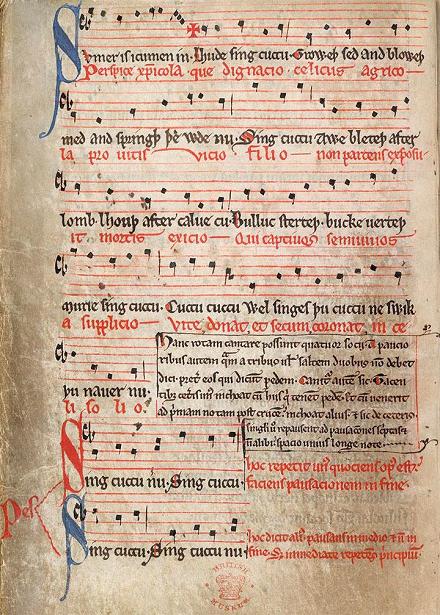 Svmer is icumen in. Lhude sing cuccu. Groweþ sed and bloweþ
Perspice xp̄icola. que dignacio. celicus agrico
med and springþ þe wde nu. Sing cuccu Awe bleteþ after
la pro uitis vicio filio non parcens exposu
lomb. lhouþ after calue cu. Bulluc sterteþ. bucke uerteþ
it mortis exicio Qui captiuos semiuiuos
murie sing cuccu. Cuccu cuccu Wel singes þu cuccu ne swik
a supplicio Vite donat et secum coronat in ce
þu nauer nu.
li so li o.
Hanc rotam cantare possunt quatuor socij. A paucio
ribus autem q̄m a tribus ul' saltem duobus nō debet
dici. preter eos qui dicūt pedem. Canitur autē sic. Tacen
tib; ceteris inchoat cū hiis qui tenēt pedē. Et cū uenerit
ad primam notam post crucē inchoat alius. & sic de ceteris.
singli u' repausent ad pausacōnes scriptas
nō alibi spacio unius longe note.
Sing cuccu nu. Sing cuccu.
hoc repetit un' quociens op' est.
faciens pausacionem in fine.
Pes
Sing cuccu. Sing cuccu nu
hoc dicit ali'. pausans in medio & nō in
fine. Sz immediate repetens principiū.
BRITISH
MUSEUM